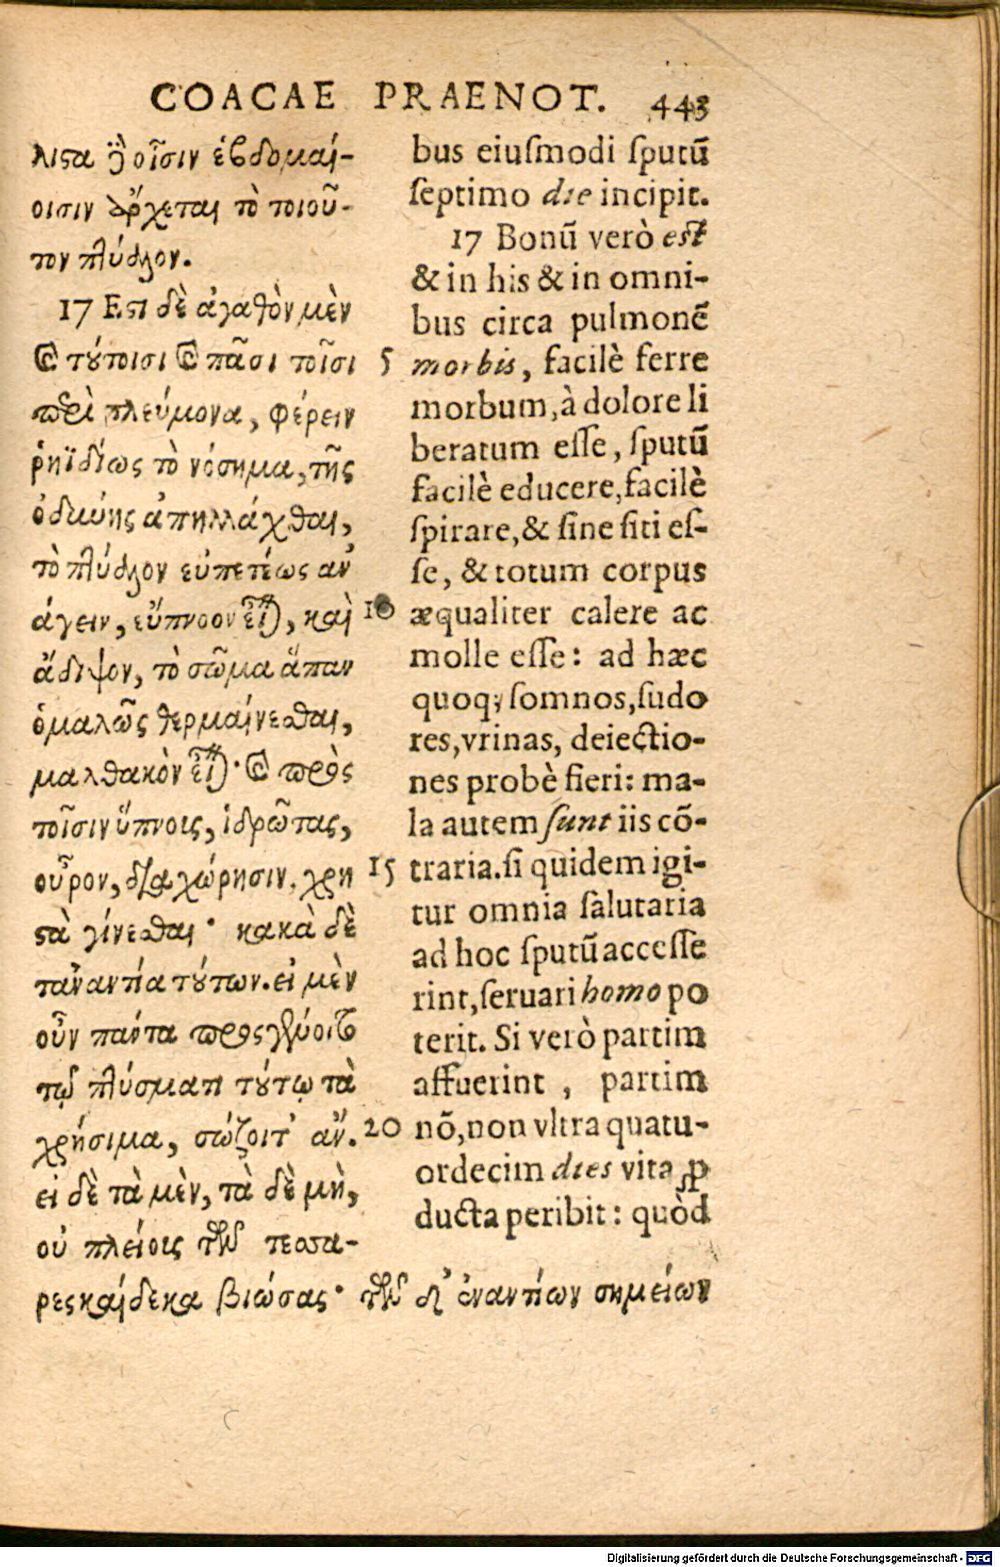 COACAE PRAENOT. 443
λιϛα ϳ οἷσιν ἑβδομαί-
οισιν ἄρχεται τὸ τοιοῦ-
τον πλύσμα.
17 Εϛι δὲ ἀγαθὸν μὲν
ϗ τȣ́τοισι ϗ πᾶσι τοῖσι
περὶ πλεύμονα, φέρειν
ῥηϊδίως τὸ νόσημα, τῆς
ὀδύνης ἀπηλλάχθαι,
τὸ πλύσμα εὐπετέως ἀν
άγειν, εὔπνοον εἶναι, καὶ
ἄδιψον, τὸ σῶμα ἅπαν
ὁμαλῶς θερμαίνεσθαι,
μαλθακὸν εἶναι· ϗ πρὸς
τοῖσιν ὕπνοις, ἱδρῶτας,
οὖρον, διαχώρησιν, χρη
ϛὰ γίνεσθαι· κακὰ δὲ
τἀναντία τȣ́των. εἰ μὲν
οὖν πάντα προσγένοιτο
τῷ πλύσματι τȣ́τῳ τὰ
χρήσιμα, σώζοιτ' ἄν.
εἰ δὲ τὰ μὲν, τὰ δὲ μὴ,
οὐ πλείοις τῶν τεσσα-
ρεσκαίδεκα βιώσας· τῶν δ' ἐναντίων σημείων
bus eiuſmodi ſputũ
ſeptimo die incipit.
17 Bonũ verò eſt
& in his & in omni-
bus circa pulmonẽ
5 morbis, facilè ferre
morbum, à dolore li
beratum eſſe, ſputũ
facilè educere, facilè
ſpirare, & ſine ſiti eſ-
ſe, & totum corpus
10 æqualiter calere ac
molle eſſe: ad hæc
quoq; ſomnos, ſudo
res, vrinas, deiectio-
nes probè fieri: ma-
la autem ſunt iis cõ-
15 traria. ſi quidem igi-
tur omnia ſalutaria
ad hoc ſputũ acceſſe
rint, ſeruari homo po
terit. Si verò partim
affuerint, partim
20 nõ, non vltra quatu-
ordecim dies vita ꝓ
ducta peribit: quòd
Digitalisierung gefördert durch die Deutsche Forschungsgemeinschaft - DFG